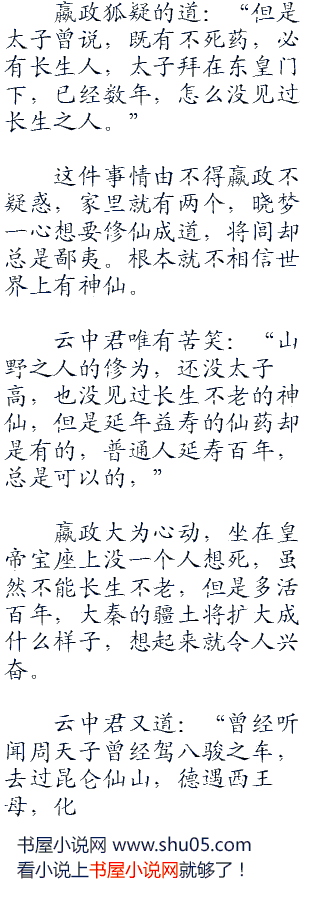 嬴政狐疑的道：“但是
太子曾说，既有不死药，必
有长生人，太子拜在东皇门
下，已经数年，怎么没见过
长生之人。”
这件事情由不得嬴政不
疑惑，家里就有两个，晓梦
一心想要修仙成道，将闾却
总是鄙夷。根本就不相信世
界上有神仙。
云中君唯有苦笑：“山
野之人的修为，还没太子
高，也没见过长生不老的神
仙，但是延年益寿的仙药却
是有的，普通人延寿百年，
总是可以的，”
嬴政大为心动，坐在皇
帝宝座上没一个人想死，虽
然不能长生不老，但是多活
百年，大秦的疆土将扩大成
什么样子，想起来就令人兴
奋。
云中君又道：“曾经听
闻周天子曾经驾八骏之车，
去过昆仑仙山，德遇西王
母，化
书屋小说网 www.shu05.com
看小说上书屋小说网就够了！